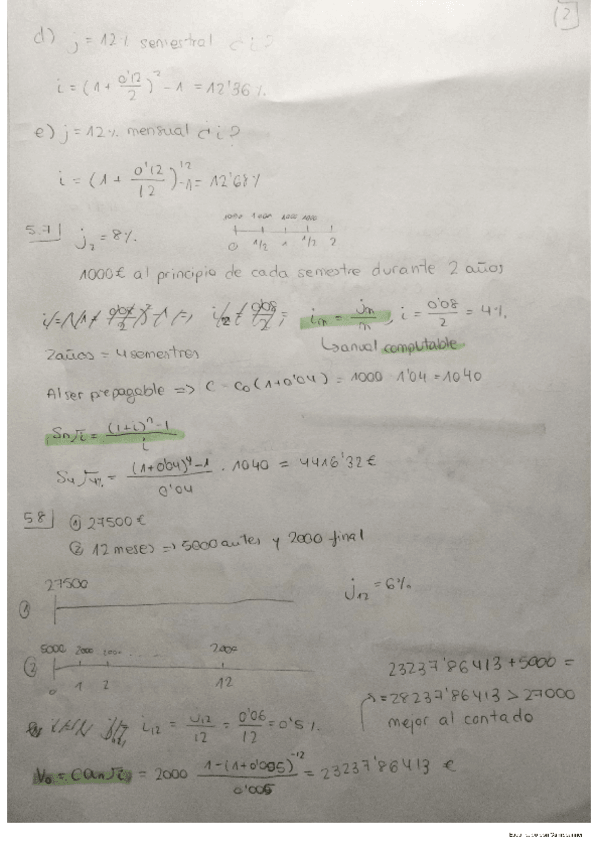 (2)
d) j = 12% semestral ¿i?
i = (1 + 0'12/2)² - 1 = 12'36%
e) j = 12% mensual ¿i?
i = (1 + 0'12/12)¹² - 1 = 12'68%
5.7| j₂ = 8%.
1000 1000 1000 1000
0 1/2 1 1/2 2
1000€ al principio de cada semestre durante 2 años
iₘ = jₘ/m, i = 0'08/2 = 4%.
2años = 4 semestres
↳ anual computable
Al ser prepagable => C = C₀(1+0'04) = 1000 · 1'04 = 1040
Sn┐i = (1+i)ⁿ-1 / i
S₄┐4% = (1+0'04)⁴-1 / 0'04 · 1040 = 4416'32€
58| ① 27500€
② 12 meses => 5000 antes y 2000 final
27500
j₁₂ = 6%
①
5000 2000 2000 ...... 2000
②
0 1 2 12
23237'86413 + 5000 =
= 28237'86413 > 27000
mejor al contado
i₁₂ = j₁₂/12 = 0'06/12 = 0'5%.
V₀ = C an┐i = 2000 1-(1+0'005)⁻¹² / 0'005 = 23237'86413 €